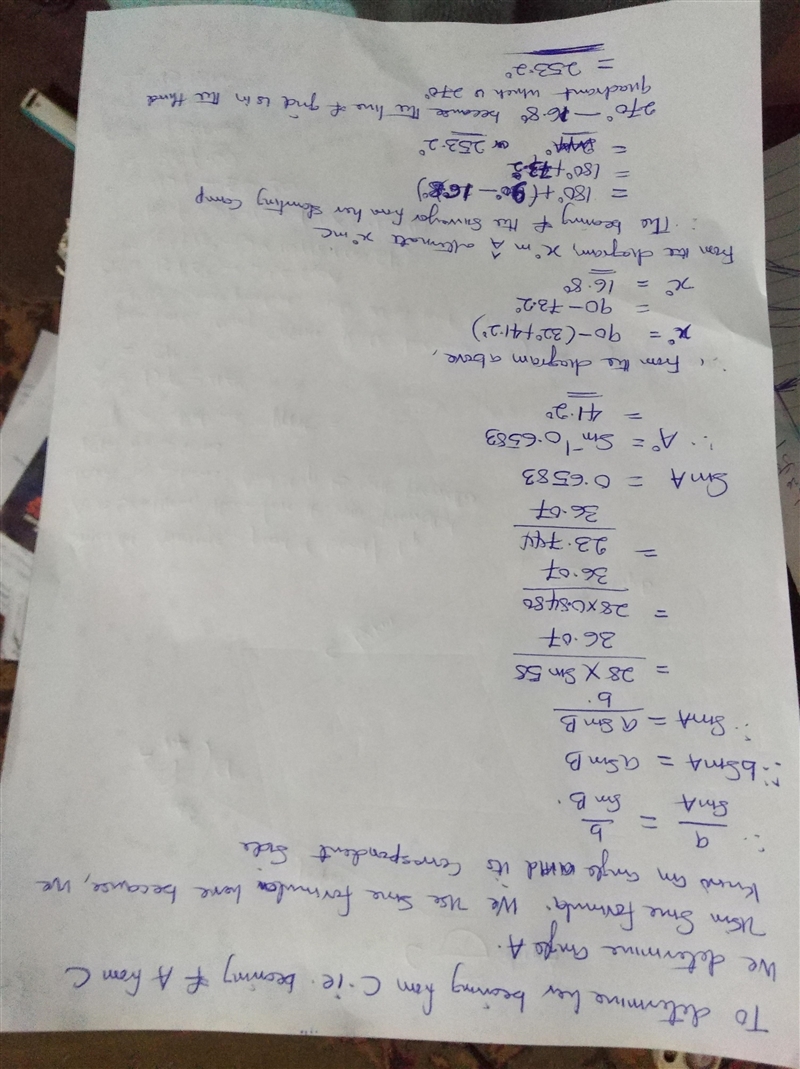 To determine her bearing from C. ie. bearing of A from C
We determine angle A.
Using Sine formula. We use Sine formula here because, we
know an angle and its Correspondent Side
∴ a/SinA = b/SinB.
∴ bSinA = aSinB
∴ SinA = aSinB/b.
= 28 × Sin 58/36.07
= 28×0.8480/36.07
= 23.744/36.07
SinA = 0.6583
∴ A° = Sin⁻¹0.6583
= 41.2°
∴ from the diagram above,
x° = 90-(32°+41.2°)
= 90-73.2°
x° = 16.8°
from the diagram, x° in A alternate x° in C
∴ The bearing of the Surveyor from her starting Camp
= 180°+(90°-16.8°)
= 180°+73.2°
= or 253.2°
270° - 16.8° because the line of grid is in the third
quadrant which is 270°
= 253.2°